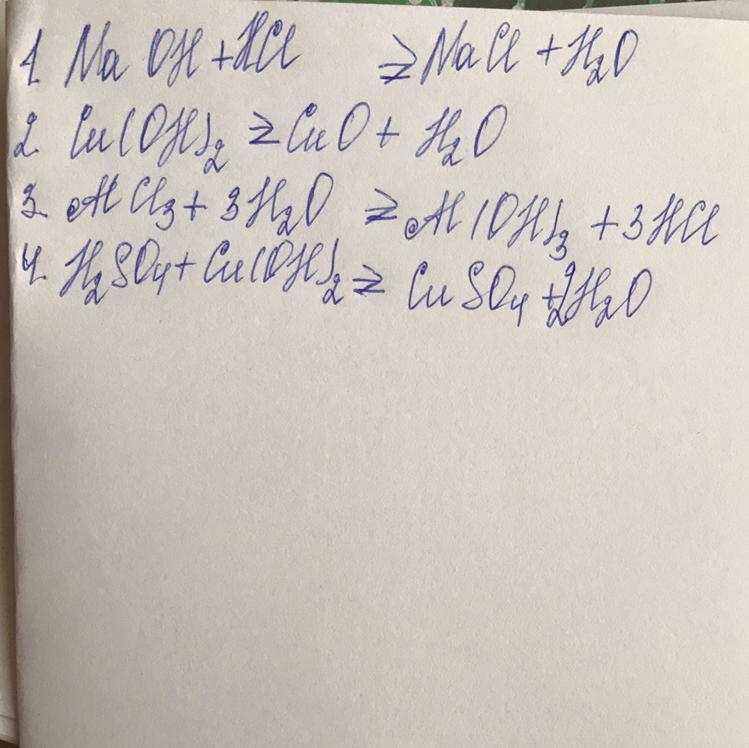 1. NaOH + HCl ⇄ NaCl + H₂O
2. Cu(OH)₂ ⇄ CuO + H₂O
3. AlCl₃ + 3H₂O ⇄ Al(OH)₃ + 3HCl
4. H₂SO₄ + Cu(OH)₂ ⇄ CuSO₄ + 2H₂O